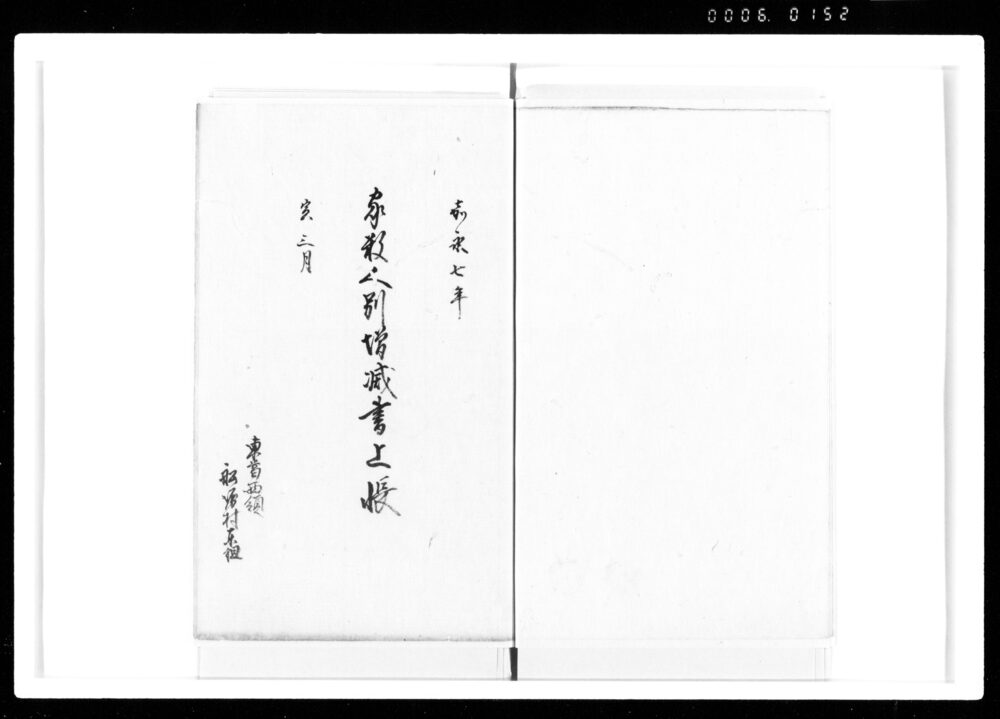 0006. 0152
嘉永七年
家数人別増減書上帳
寅三月
東葛西領
船堀村東組